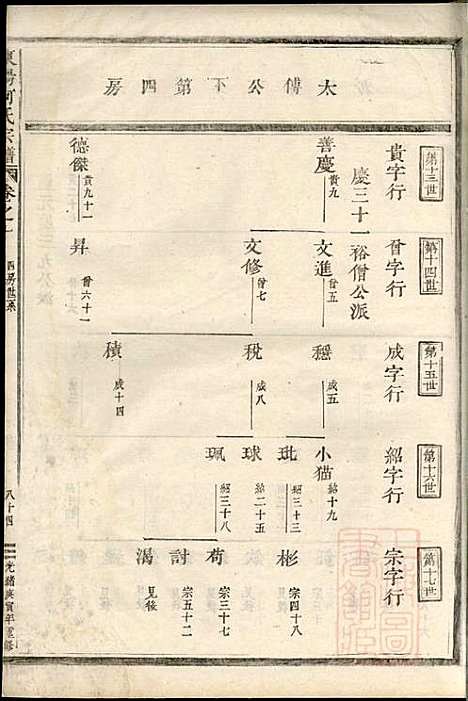 太傅公下第四房
第十三世
第十四世
第十五世
第十六世
第十七世
貴字行
晉字行
成字行
紹字行
宗字行
慶三十一裕僧公派
善慶 貴九
德傑 貴九十一
文進 晉五
文修 晉七
昇 晉六十一
穩 成五
稅 成八
積 成十四
小猫 紹十九
玭 紹三十三
球 紹二十五
珮 紹三十八
彬 宗四十八
荀 宗三十七
討 宗五十二
渴 見後
見後
見後
四房世系
八十四
光緒庚寅年重修